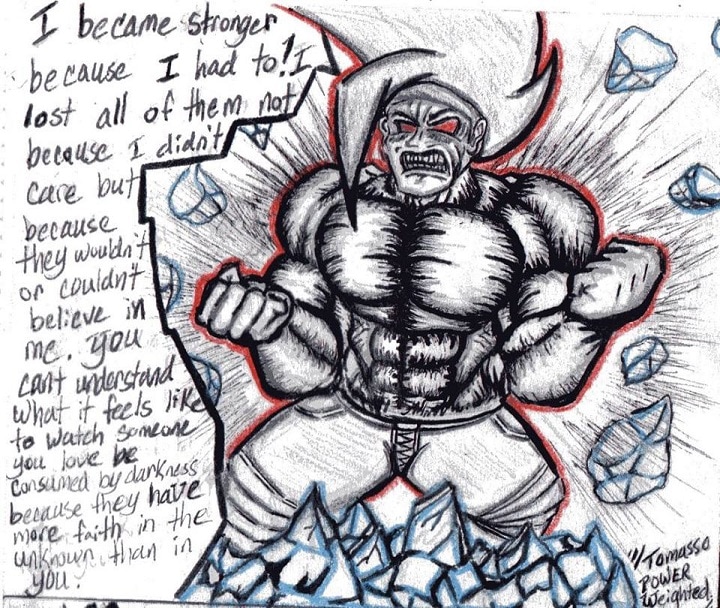 I became stronger
because I had to! I
lost all of them not
because I didn't
care but
because
they wouldn't
or couldn't
believe in
me. You
can't understand
what it feels like
to watch someone
you love be
consumed by darkness
because they have
more faith in the
unknown than in
you.
"/Tomasso
POWER
Weighted.